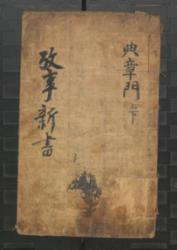 典章門 上下
攷事新書